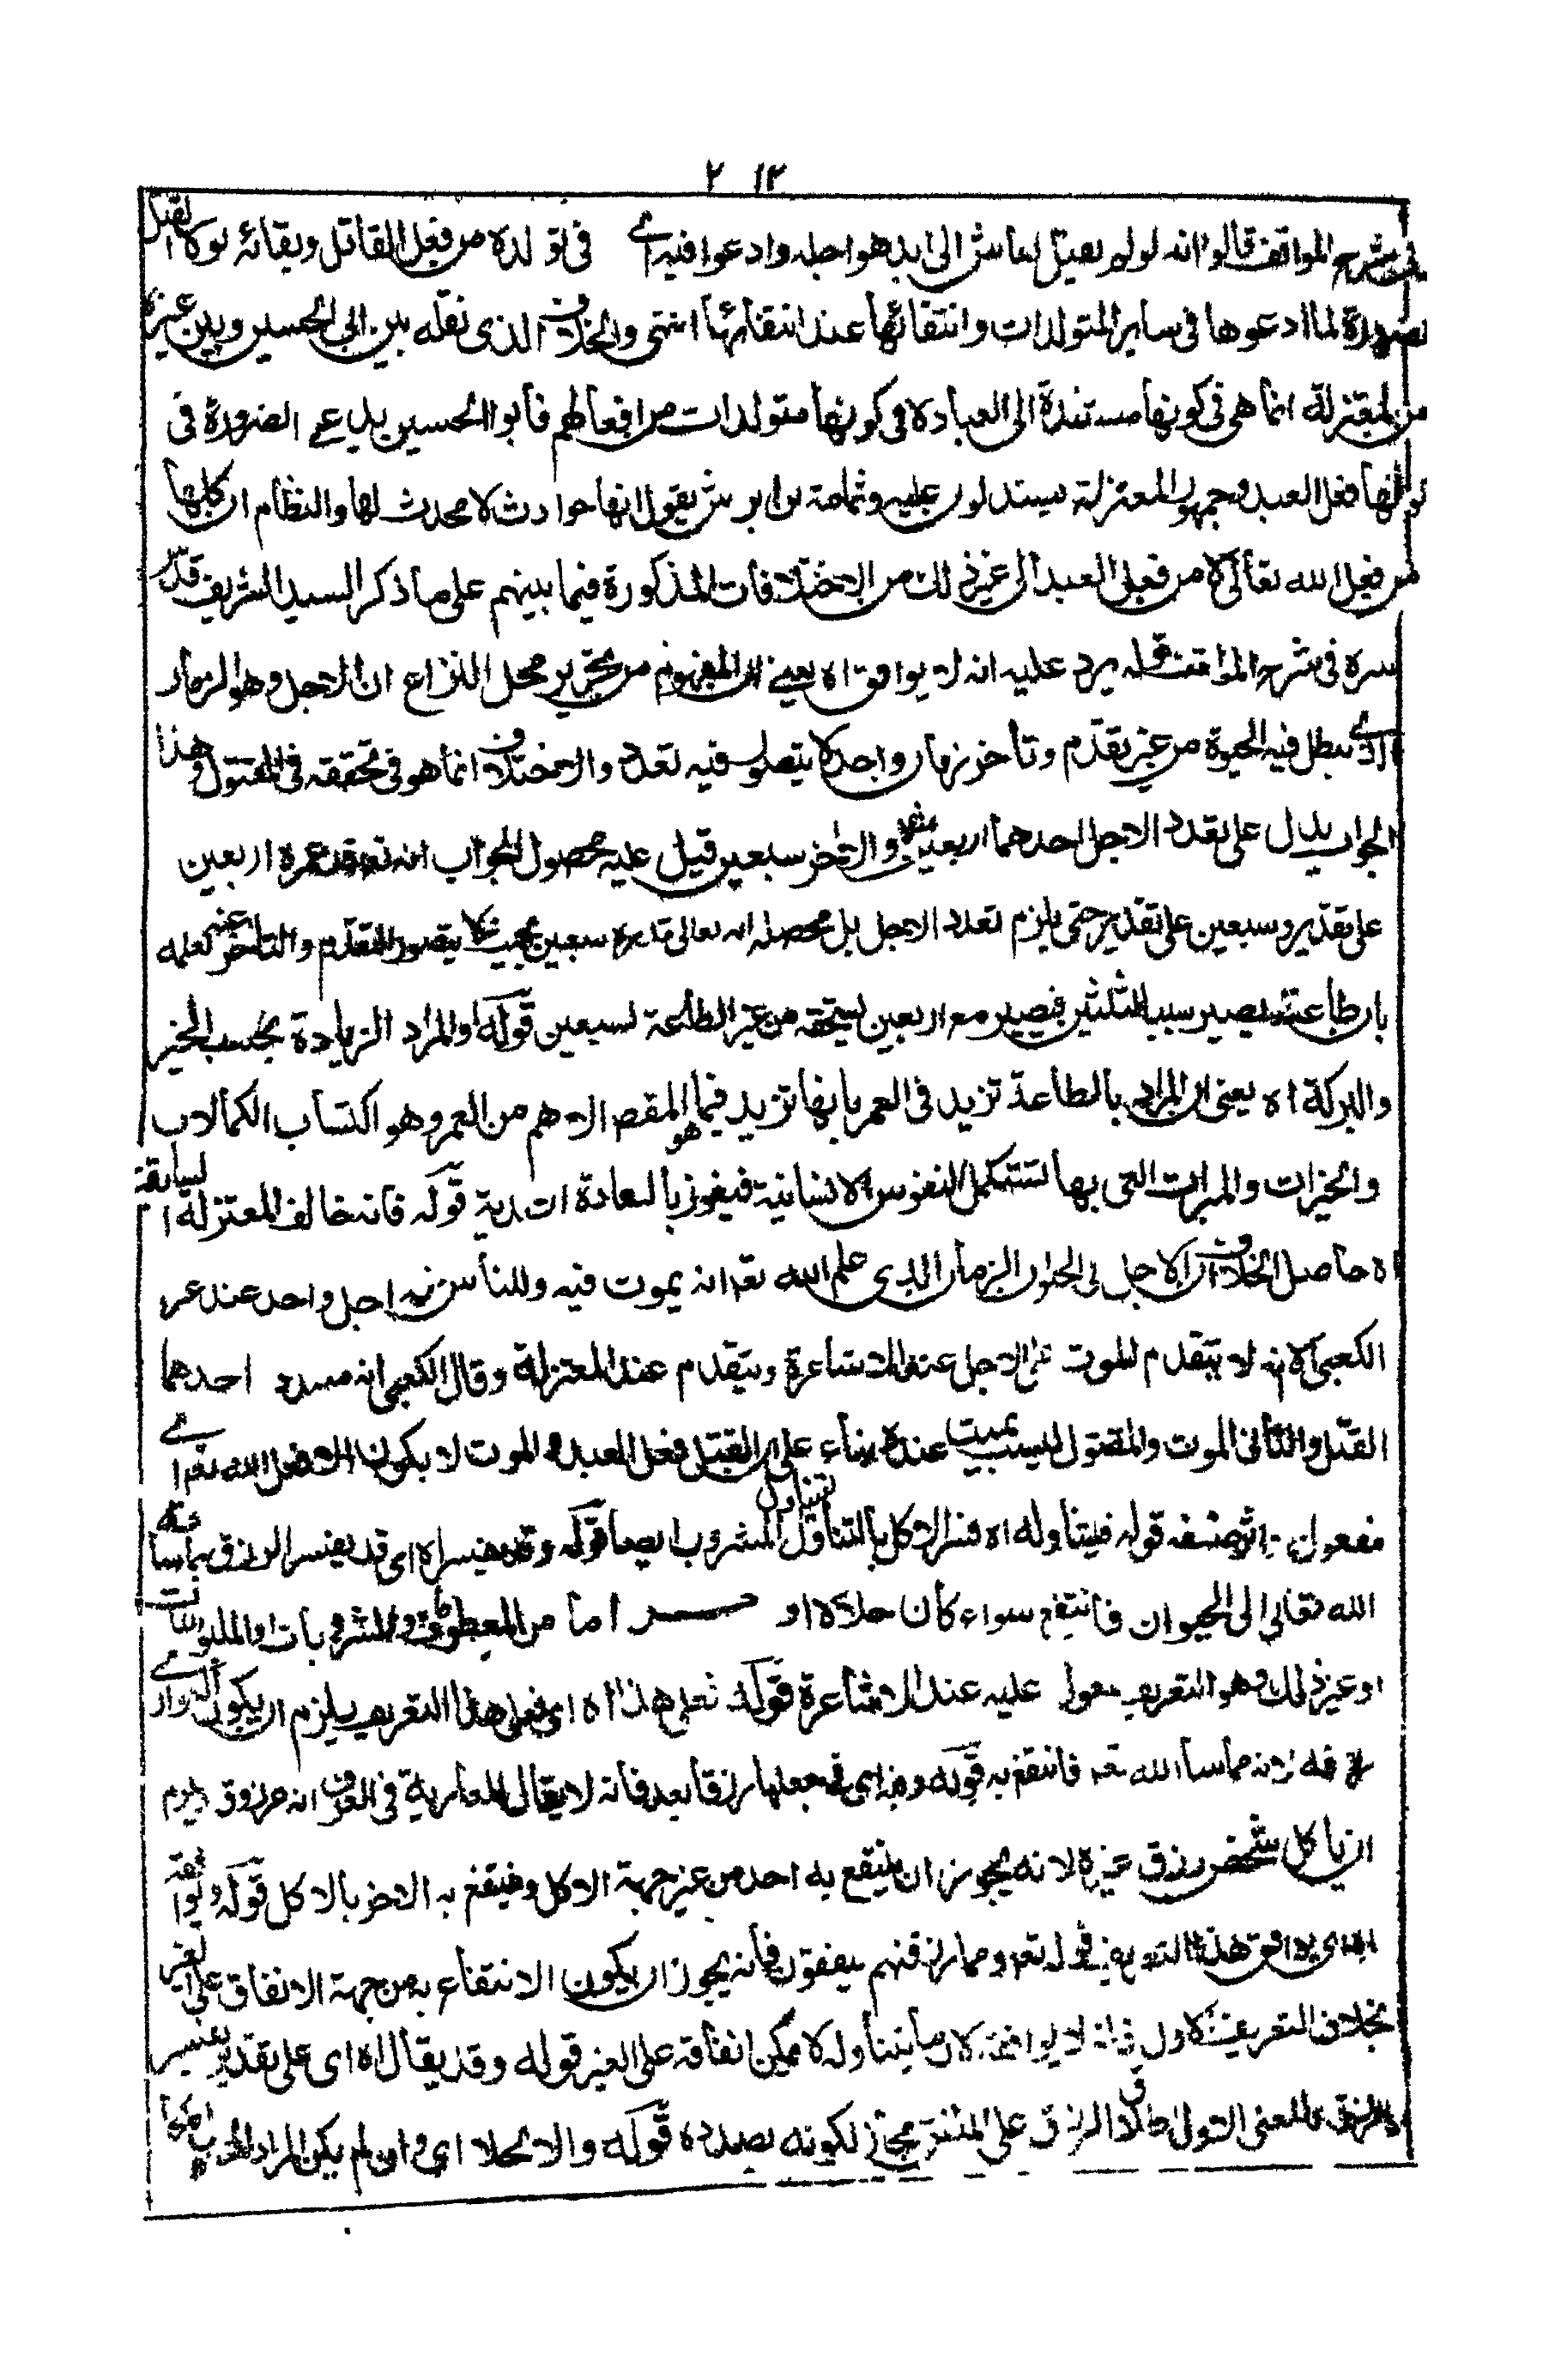 ٢١٢
في شرح المواقف قالوا انه لو لم يقتل لعاش الى ابد هو اجله وادعوا فيه اى في تولده من فعل القاتل وبقائه لولا القتل
الضرورة كما ادعوها في سائر المتولدات وانتفائها عند انتفائها انتهى والخلاف الذى نقله بين ابى الحسين وبين غيره
من المعتزلة انما هى في كونها مستندة الى العباد لا في كونها متولدات من افعالهم فابو الحسين يدعى الضرورة في
كونها فعل العبد وجمهور المعتزلة يستدلون عليه وثمامة بن ابرش يقول انها حوادث لا محدث لها والنظام ان كلها
من فعل الله تعالى لا من فعل العبد الى غير ذلك من الاختلافات المذكورة فيما بينهم على ما ذكر السيد الشريف قدس
سره في شرح المواقف قوله يرد عليه انه لا يوافق اه يعنى ان المفهوم من تحرير محل النزاع ان الاجل وهو الزمان
الذى تبطل فيه الحيوة من غير تقدم وتأخر زمان واحد لا يتصور فيه تعدد والاختلاف انما هو في تحققه في المقتول وهذا
الجواب يدل على تعدد الاجل احدهما اربعين والاخر سبعين قيل عليه محصول الجواب انه تع قدر عمره اربعين
على تقدير وسبعين على تقدير حتى يلزم تعدد الاجل بل محصله انه تعالى قدره سبعين بحيث لا يتصور التقدم والتاخر عنه لعلمه
بان طاعته يصير سببا لثلثين فيصير مع اربعين يستحقه من غير الطاعة لسبعين قوله او المراد الزيادة بحسب الخير
والبركة اه يعنى ان المراد بالطاعة تزيد في العمر بانها تزيد فيما هو المقصد الاهم من العمر وهو اكتساب الكمالات
والخيرات والمبرات التى بها تستكمل النفوس الانسانية فيفوز بالسعادة الابدية قوله فانه خالف المعتزلة السابقة
اه حاصل الخلاف ان الاجل في الحيوان الزمان الذى علم الله تع انه يموت فيه وللناس فيه اجل واحد عند غير
الكعبى الا انه لا يتقدم الموت على الاجل عند الاشاعرة ويتقدم عند المعتزلة وقال الكعبى انه متعدد احدهما
القتل والثانى الموت والمقتول ليس بميت عنده بناء على ان القتل فعل العبد والموت لا يكون الا فعل الله تع اى
مفعوله واثر صفته قوله فيتناوله اه فسر الاكل بالتناول ليتناول المشروب ايضا قوله وقد يفسر اه اى قد يفسر الرزق بما ساقه
الله تعالى الى الحيوان فانتفع سواء كان حلالا او حراما من المطعومات والمشروبات او الملبوسات
او غير ذلك وهو التعريف معول عليه عند الاشاعرة قوله فعلى هذا اه اى فعلى هذا التعريف يلزم ان يكون العوارى
رزقه لانه مما ساه الله تع فانتفع به قوله وفيه اى في جعلها رزقا بعد فانه لا يقال للعارية في العرف انه مرزوق ويلزم
ان ياكل شخص رزق غيره لانه يجوز ان ينتفع به احد من غير جهة الاكل وينتفع به الاخر بالاكل قوله ويوافقه
اه اى يوافق هذا التعريف قوله تع ومما رزقنهم ينفقون فانه يجوز ان يكون الانتفاع به من جهة الانفاق على الغير
بخلاف التعريف الاول فانه لا يوافقه لان ما يتناوله لا يمكن انفاقه على الغير قوله وقد يقال اه اى على تقدير تفسير
الرزق بالمعنى الاول اطلاق الرزق على المنفق مجاز لكونه بصدده قوله والا لخلا اى وان لم يكن المراد